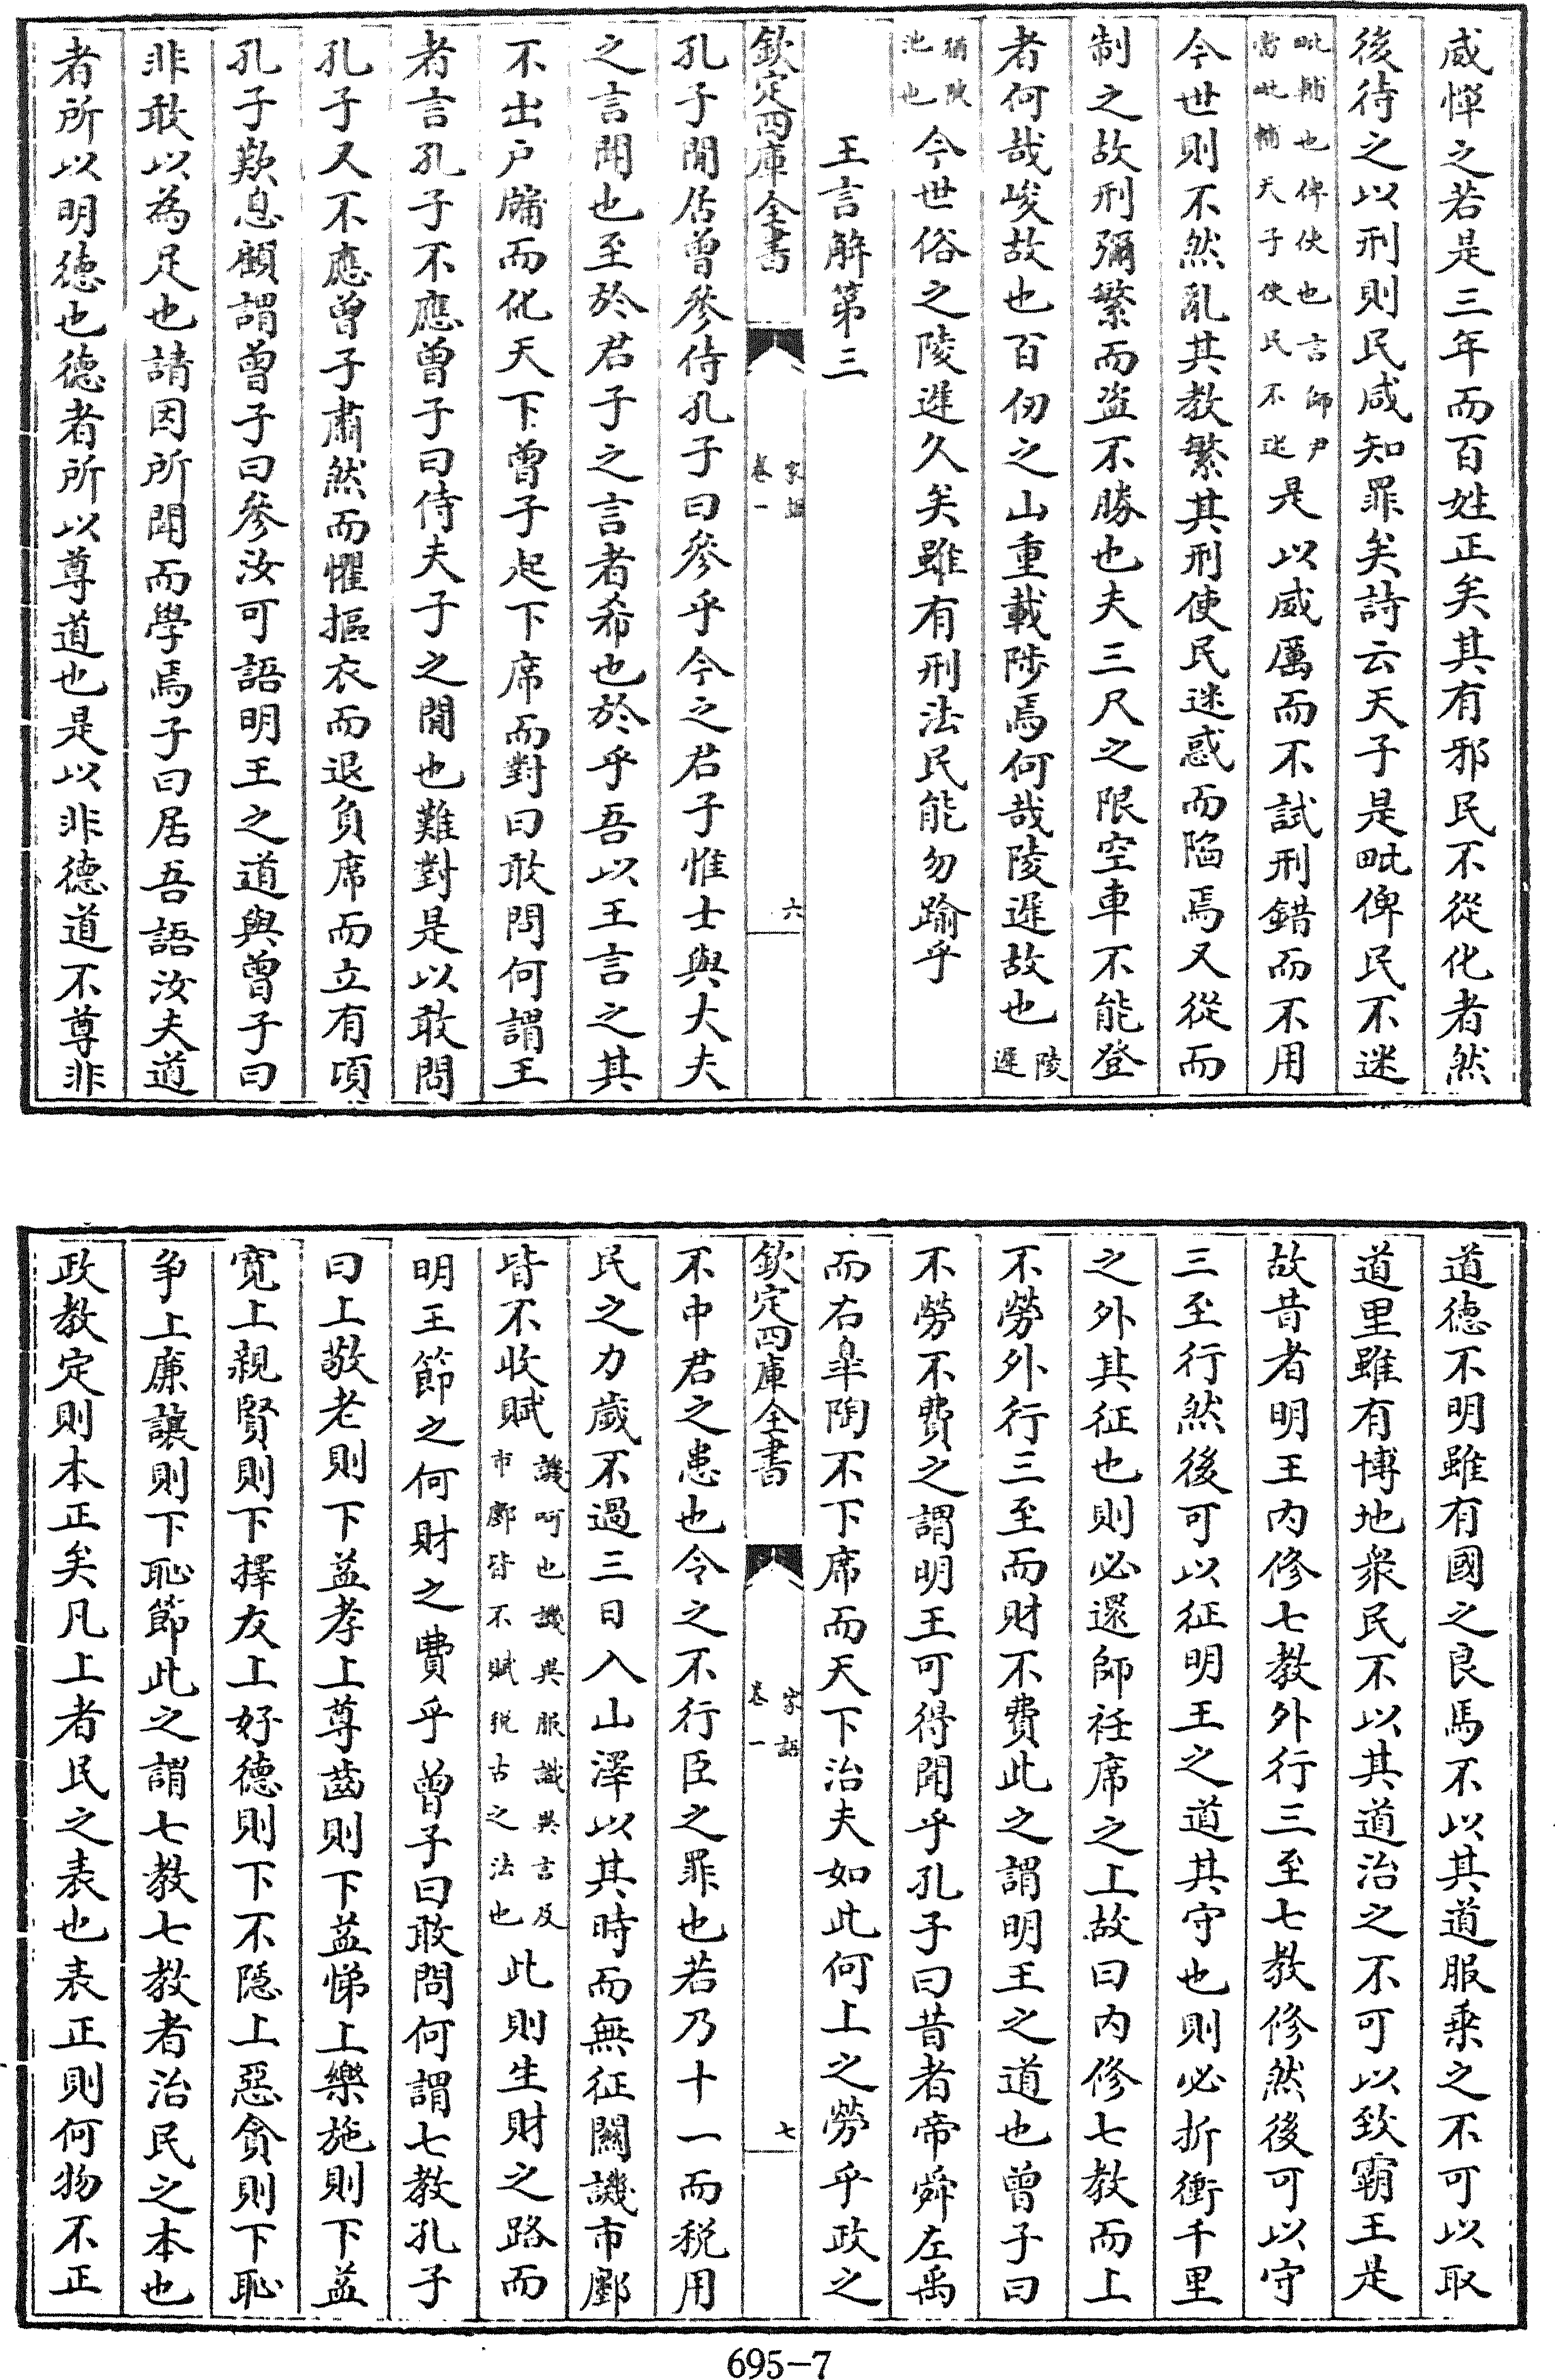 咸憚之若是三年而百姓正矣其有邪民不從化者然
後待之以刑則民咸知罪矣詩云天子是毗俾民不迷
毗輔也俾使也言師尹
當毗輔天子使民不迷
是以威厲而不試刑錯而不用
今世則不然亂其教繁其刑使民迷惑而陷焉又從而
制之故刑彌繁而盗不勝也夫三尺之限空車不能登
者何哉峻故也百仞之山重載陟焉何哉陵遲故也
陵
遲
猶陂
池也
今世俗之陵遲久矣雖有刑法民能勿踰乎
王言解第三
欽定四庫全書
家語
卷一
六
孔子閒居曾參侍孔子曰參乎今之君子惟士與大夫
之言聞也至於君子之言者希也於乎吾以王言之其
不出户牖而化天下曾子起下席而對曰敢問何謂王
者言孔子不應曾子曰侍夫子之閒也難對是以敢問
孔子又不應曾子肅然而懼摳衣而退負席而立有頃
孔子歎息顧謂曾子曰參汝可語明王之道與曾子曰
非敢以為足也請因所聞而學焉子曰居吾語汝夫道
者所以明德也德者所以尊道也是以非德道不尊非
道德不明雖有國之良馬不以其道服乗之不可以取
道里雖有博地衆民不以其道治之不可以致霸王是
故昔者明王内修七教外行三至七教修然後可以守
三至行然後可以征明王之道其守也則必折衝千里
之外其征也則必還師衽席之上故曰内修七教而上
不勞外行三至而財不費此之謂明王之道也曾子曰
不勞不費之謂明王可得聞乎孔子曰昔者帝舜左禹
而右臯陶不下席而天下治夫如此何上之勞乎政之
欽定四庫全書
家語
卷一
七
不中君之患也令之不行臣之罪也若乃十一而税用
民之力歲不過三日入山澤以其時而無征關譏市鄽
皆不收賦
譏呵也譏異服識異言及
市鄽皆不賦税古之法也
此則生財之路而
明王節之何財之費乎曾子曰敢問何謂七教孔子
曰上敬老則下益孝上尊齒則下益悌上樂施則下益
寛上親賢則下擇友上好德則下不隠上惡貪則下恥
爭上廉讓則下恥節此之謂七教七教者治民之本也
政教定則本正矣凡上者民之表也表正則何物不正
695-7